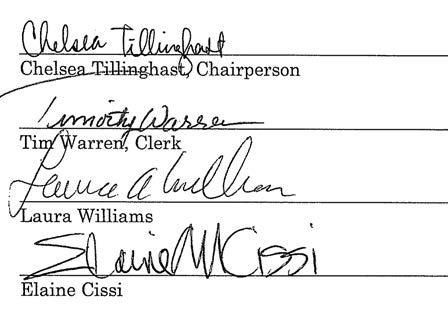 Chelsea Tillinghast
Chelsea Tillinghast, Chairperson
Timothy Warren
Tim Warren, Clerk
Laura A Williams
Laura Williams
Elaine M Cissi
Elaine Cissi